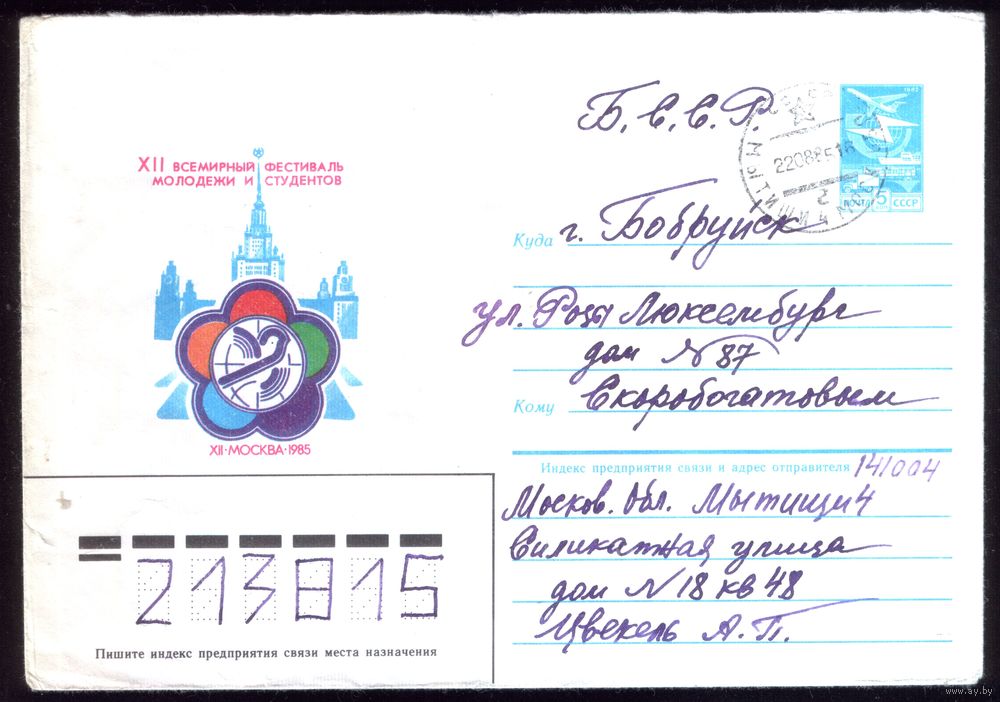 Б.С.С.Р.
1982
ПОЧТА 5 КОП СССР
МЫТИЩИ 4 МОСК
22088516
2
XII ВСЕМИРНЫЙ ФЕСТИВАЛЬ
МОЛОДЕЖИ И СТУДЕНТОВ
XII·МОСКВА·1985
Куда г. Бобруйск
ул. Розы Люксембург
дом № 87
Кому Скоробогатовым
Индекс предприятия связи и адрес отправителя 141004
Москов. Обл. Мытищи 4
Силикатная улица
дом N 18 кв 48
Цвекель А.П.
213815
Пишите индекс предприятия связи места назначения
www.ay.by